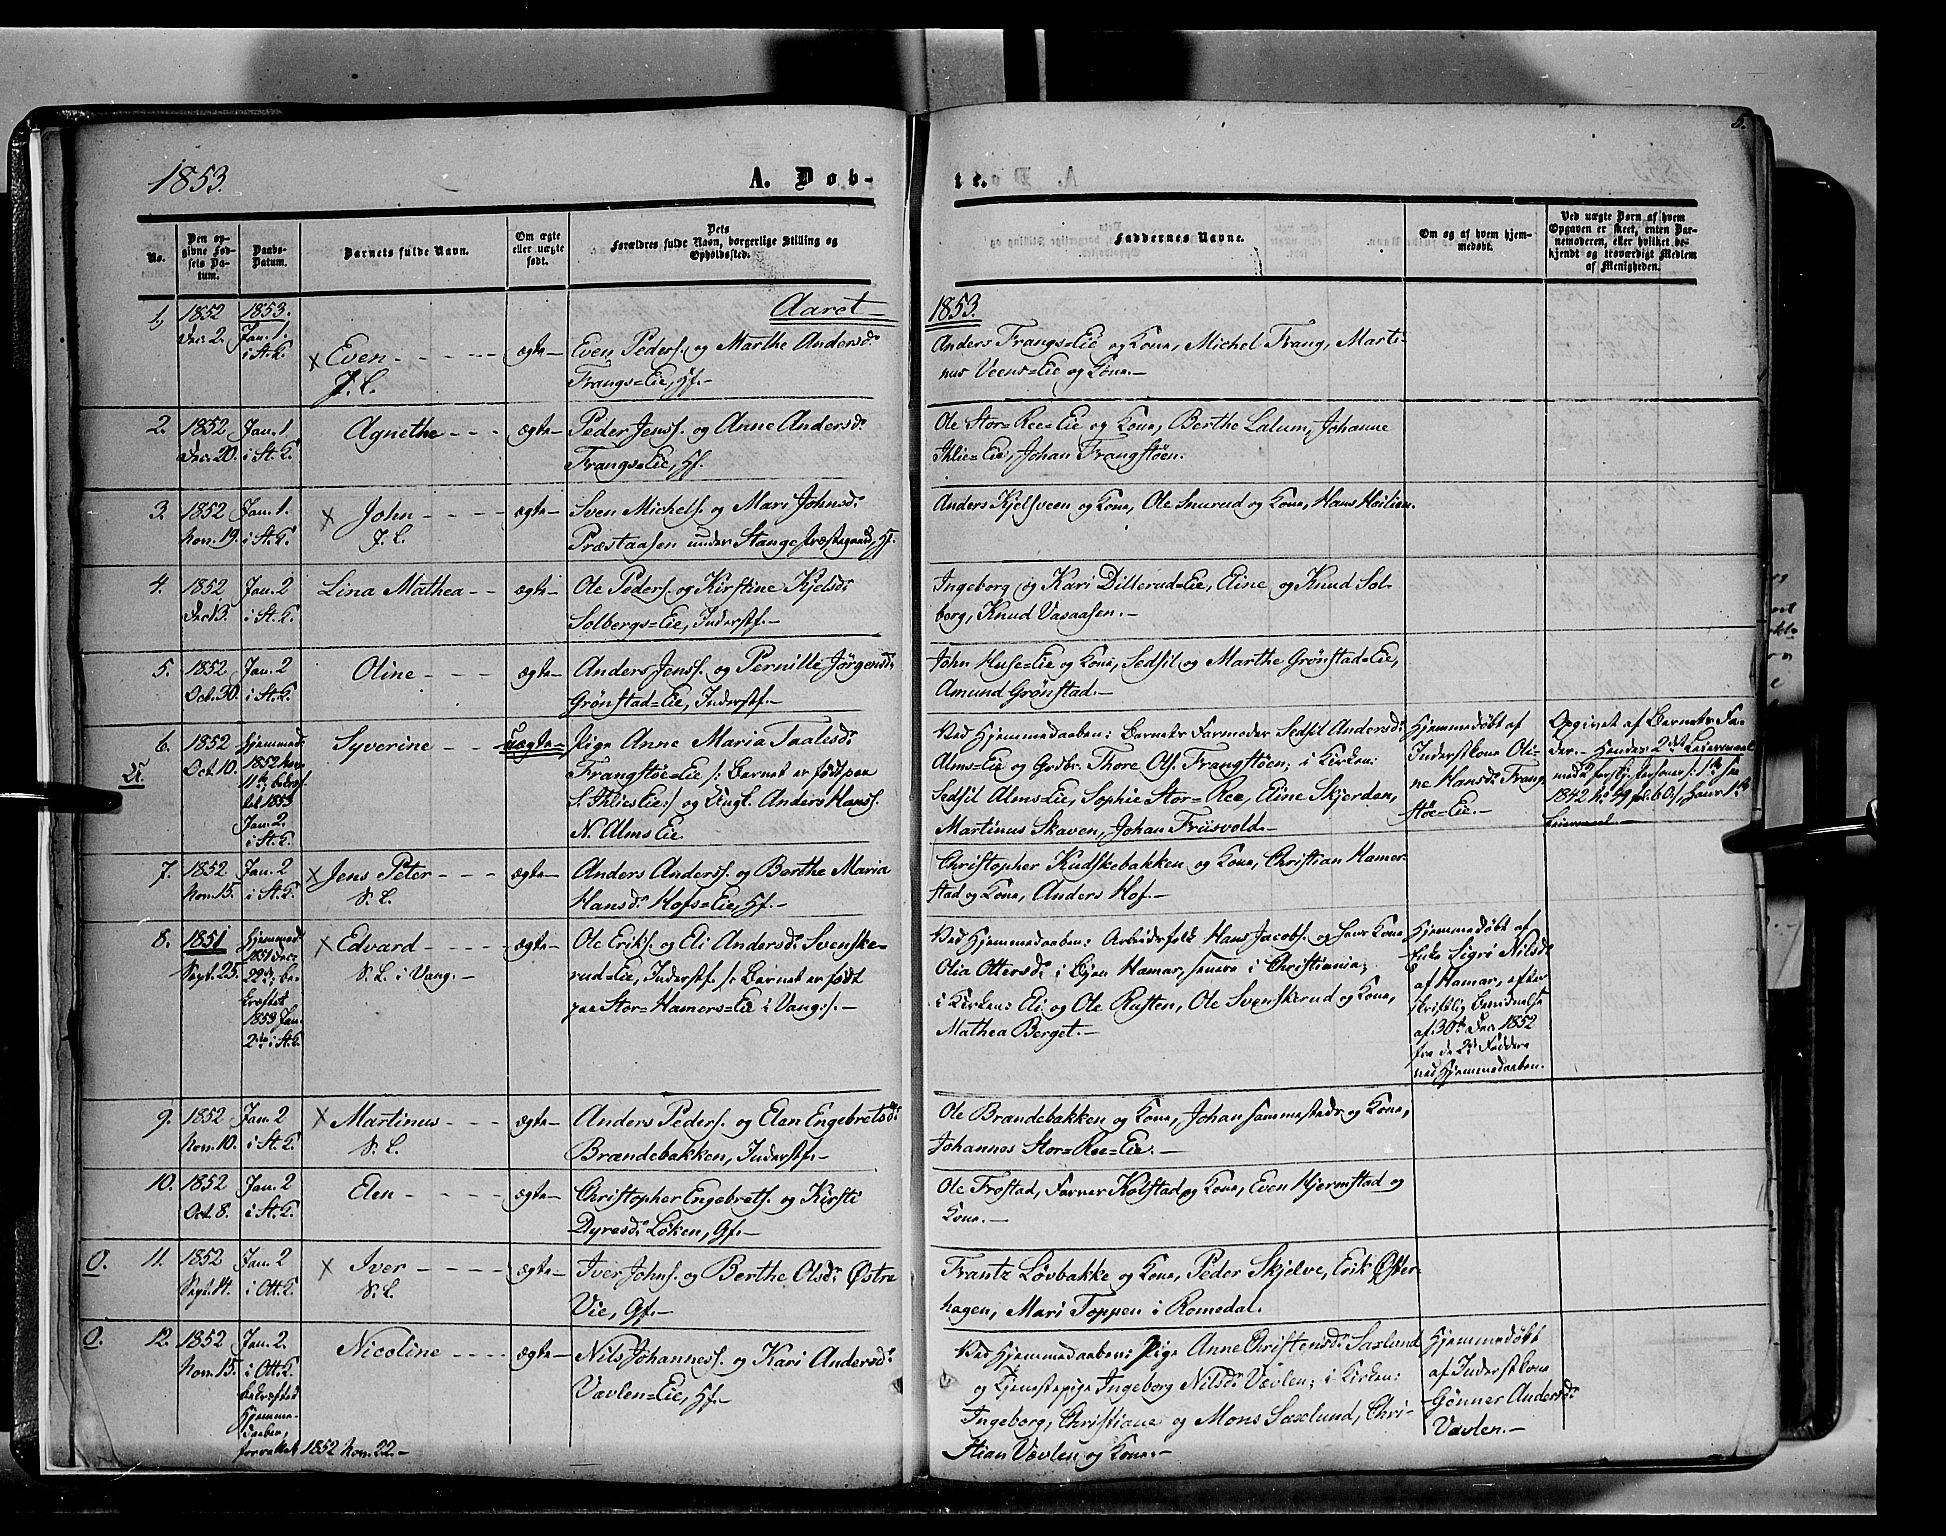 1853.
A. Døb-
te.
5.
No.
Den op-
givne Fød-
sels Da-
tum.
Daabs-
Datum.
Barnets fulde Navn.
Om ægte
eller uægte
født.
Dets
Forældres fulde Navn, borgerlige Stilling og
Opholdssted.
Faddernes Navne.
Om og af hvem hjem-
medøbt.
Ved uægte Børn af hvem
Opgaven er skeet, enten Bar-
nemoderen, eller hvilket be-
kjendt og troværdigt Medlem
af Menigheden.
Aaret
1853.
1, 1852 Dec. 2.
1853. Jan. 1. i St. K.
× Even
J. C.
ægte
Even Peders. og Marthe Andersd:
Frangs=Eie, Hf.
Anders Frangs=Eie og Kone, Michel Frang, Marti-
nus Veens=Eie og Kone.
2. 1852 Dec. 20.
Jan. 1 i St. K.
Agnethe
ægte
Peder Jenss. og Anne Andersd:
Frangs=Eie, Hf.
Ole Stor=Ree=Eie og Kone, Berthe Lalum, Johanne
Ihlie=Eie, Johan Frangstøen.
3. 1852 Nov. 19.
Jan. 1. i St. K.
× John
J. C.
ægte
Sven Michels. og Mari Johnsd:
Præstaasen under Stange Præstegaard, Hf.
Anders Kjelsveen og Kone, Ole Snurud og Kone, Hans Høilien.
4. 1852 Dec. 3.
Jan. 2 i St. K.
Lina Mathea
ægte
Ole Peders. og Kirstine Kjelsd:
Solbergs=Eie, Inderstf.
Ingeborg og Kari Dillerud=Eie, Eline og Knud Sol-
berg, Knud Vasaasen.
5. 1852 Oct. 30.
Jan. 2 i St. K.
Oline
ægte
Anders Jenss. og Pernille Jørgensd:
Grønstad=Eie, Inderstf.
John Huse=Eie og Kone, Sedsil og Marthe Grønstad=Eie,
Amund Grønstad.
6. 1852 Oct. 10.
Hjemmed.
1852 Nov.
11te; bekræf-
tet 1853
Jan. 2.
i St. K.
Syverine
uægte
Pige Anne Maria Taalesd:
Frangstøe=Eie /: Barnet er født paa
S. Ihlies Eie :/ og Ungk. Anders Hanss.
N. Alms Eie
Ved Hjemmedaaben: Barnets Farmoder Sedsil Andersd:
Alms=Eie og Grdbr. Thore Ols. Frangstøen; i Kirken:
Sedsil Alms=Eie, Sophie Stor=Ree, Eline Skjerden,
Martinus Skaven, Johan Friisvold.
Hjemmedøbt af
Inderstkone Oli-
ne Hansd: Frang
støe=Eie.
Opgivet af Barnets Fa-
der. Hendes 2det Leiermaal
med 2 forskj. Personer
7. 1852 Nov. 15.
Jan. 2 i St. K.
× Jens Peter
S. C.
ægte
Anders Anders. og Berthe Maria
Hansd: Hofs=Eie, Hf.
Christopher Kudskebakken og Kone, Christian Hamer-
stad og Kone, Anders Hof.
8. 1851 Sept. 25.
Hjemmed.
1851 Dec.
22de; be-
kræftet
1853 Jan.
2de i St. K.
× Edvard
S. C. i Vang.
ægte
Ole Eriks. og Eli Andersd: Svenske-
rud=Eie, Inderstf. /: Barnet er født
paa Stor=Hamers=Eie i Vang :/.
Ved Hjemmedaaben: Arbeidsfolk Hans Jacobs. og hans Kone
Olia Ottersd: i Byen Hamar, senere i Christiania;
i Kirken: Eli og Ole Rusten, Ole Svenskerud og Kone,
Mathea Berget.
Hjemmedøbt af
Enke Sigri Nilsd:
af Hamar, efter
skriftlig Bevidnelse
af 30te Dec. 1852
fra de 2de Faddere
ved Hjemmedaaben.
9. 1852 Nov. 10.
Jan. 2 i St. K.
× Martinus
S. C.
ægte
Anders Peders. og Elen Engebretsd:
Brændebakken, Inderstf.
Ole Brændebakken og Kone, Johan sammesteds og Kone,
Johannes Stor=Ree=Eie.
10. 1852 Oct. 8.
Jan. 2 i St. K.
Elen
ægte
Christopher Engebrets. og Kirsti
Dyresd: Løken, Gf.
Ole Frøstad, Farner Kolstad og Kone, Even Hjermstad og
Kone.
O. 11. 1852 Sept. 14.
Jan. 2 i Ott. K.
× Iver
S. C.
ægte
Iver Johns. og Berthe Olsd: Østre
Vie, Gf.
Frantz Løvbakke og Kone, Peder Skjelve, Erik Øster-
hagen, Mari Toppen i Romedal.
O. 12. 1852 Nov. 15.
Jan. 2.
i Ott. K.
bekræftet
Hjemme-
daaben,
forrettet 1852 Nov. 22.
Nicoline
ægte
Nils Johanness. og Kari Andersd:
Vævlen=Eie, Hf.
Ved Hjemmedaaben: Pige Anne Christensd: Saxlund
og Tjenestepige Ingeborg Nilsd: Vævlen; i Kirken:
Ingeborg, Christiane og Mons Saxlund, Chri-
stian Vævlen og Kone.
Hjemmedøbt
af Inderstkone
Gønner Andersd:
Vævlen.